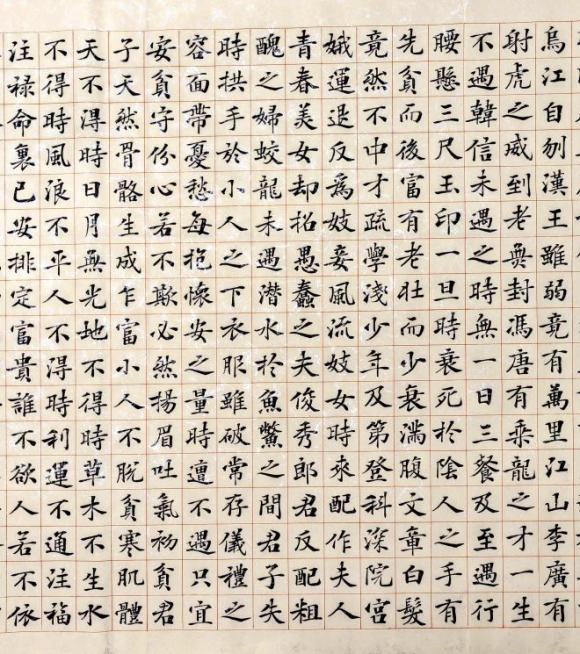 烏江自刎漢王雖弱竟有萬里江山李廣有
射虎之威到老無封馮唐有乘龍之才一生
不遇韓信未遇之時無一日三餐及至遇行
腰懸三尺玉印一旦時衰死於陰人之手有
先貧而後富有老壯而少衰滿腹文章白髮
竟然不中才疏學淺少年及第登科深院宮
娥運退反為妓妾風流妓女時來配作夫人
青春美女却招愚蠢之夫俊秀郎君反配粗
醜之婦蛟龍未遇潛水於魚鱉之間君子失
時拱手於小人之下衣服雖破常存儀禮之
容面帶憂愁每抱懷安之量時遭不遇只宜
安貧守份心若不欺必然揚眉吐氣初貧君
子天然骨骼生成乍富小人不脫貧寒肌體
天不得時日月無光地不得時草木不生水
不得時風浪不平人不得時利運不通注福
注祿命裏已安排定富貴誰不欲人若不依